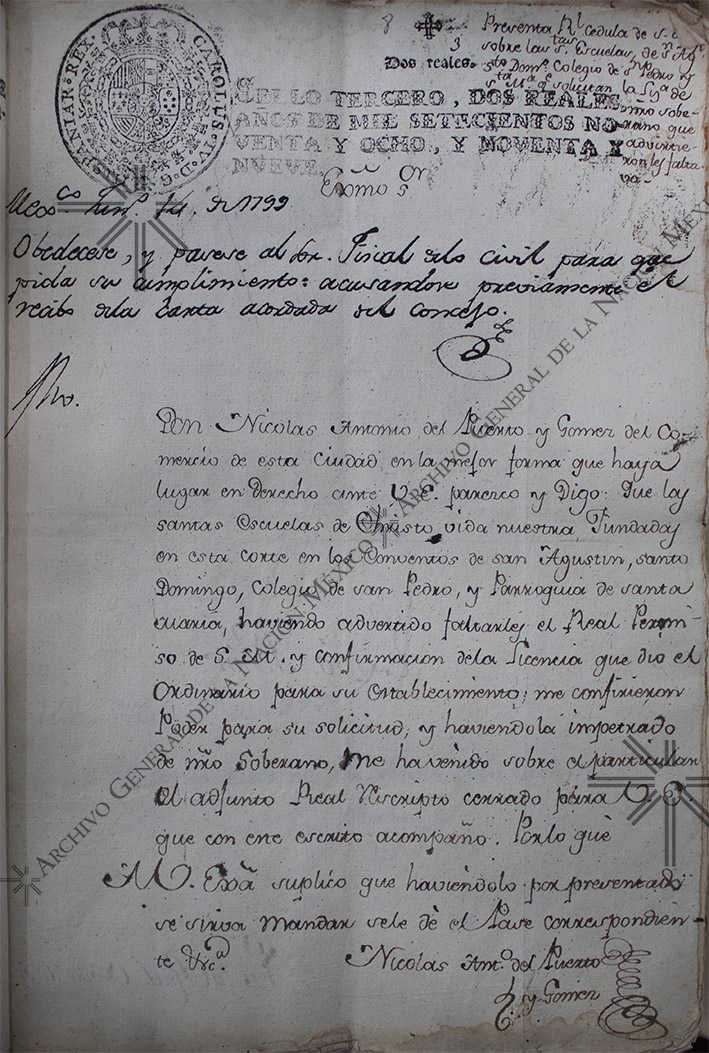 HISPANIAR. REX. CAROLUS. IV. D. G.
8
3
Dos reales.
Presenta Rl Cedula de S.
sobre las stas Escuelas, de Sn Agn
sto Domo Colegio de Sn Pedro y
sta Ma qe solicitan la Lya de
nño sobe-
rano que
advirtie-
ron les falta-
va-
SELLO TERCERO, DOS REALES
AÑOS DE MIL SETECIENTOS NO-
VENTA Y OCHO, Y NOVENTA Y
NUEVE.
Exmo Sor
Mexco Jun. 14, de 1799
Obedecese, y pasese al Sor. Fiscal delo Civil para que
pida su cumplimiento: acusandose previamente el
recibo dela Carta acordada del Concejo.
Don Nicolas Antonio del Puerto y Gomez del Co-
mercio de esta Ciudad en la mejor forma que haya
lugar en Derecho ante V. E. paresco y Digo: Que las
santas Escuelas de Christo vida nuestra Fundadas
en esta Corte en los Conventos de san Agustin, santo
Domingo, Colegio de san Pedro, y Parroquia de santa
Maria, haviendo advertido faltarles el Real Permi-
so de S. M. y confirmacion dela Licencia que dio el
Ordinario para su establecimiento; me confirieron
Poder para su solicitud, y haviendola impetrado
de nño Soberano, me ha venido sobre el particular
el adjunto Real Rescripto cerrado para V. E.
que con este escrito acompaño. Por lo que
A V. Exâ suplico que haviendolo por presentado
se sirva mandar se le dè el Pase correspondien-
te &c.a
Nicolas Anto del Puerto
y Gomez
Archivo General de la Nación México
Archivo General de la Nación México
Archivo General de la Nación México